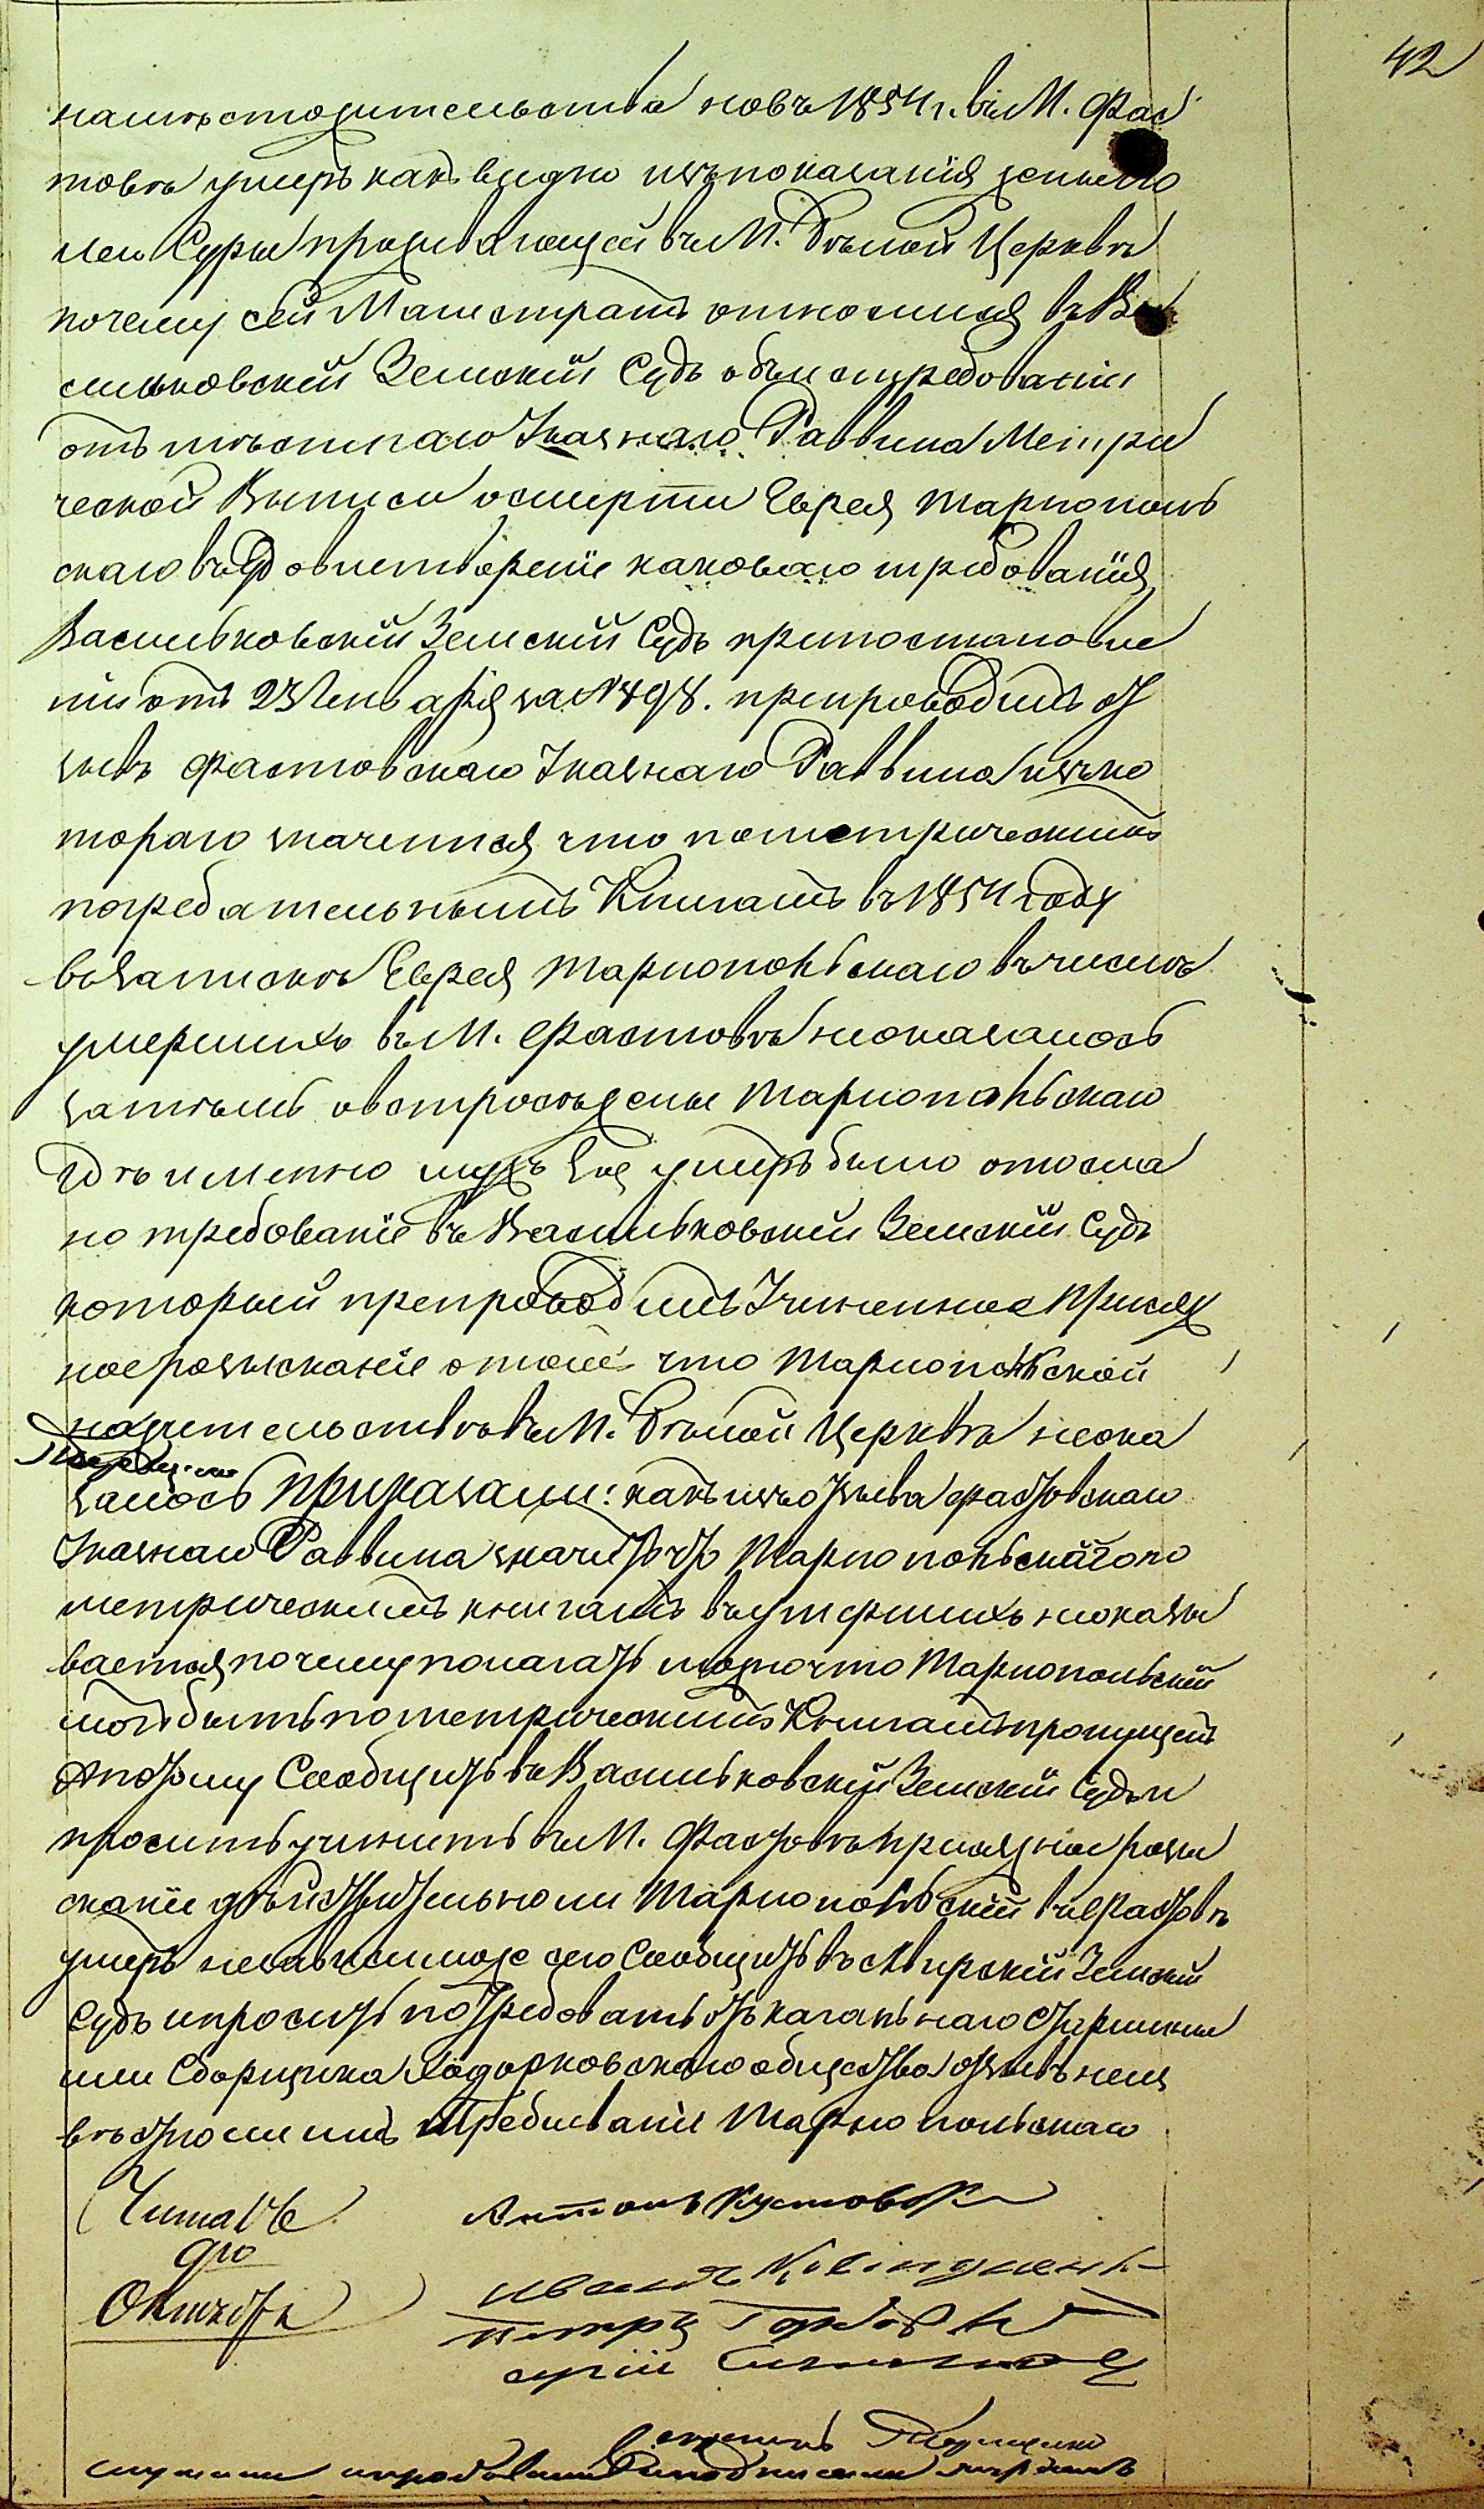 42
нашъ стожительства новъ 1854 г. въ М. Фас
товъ умеръ какъ видно изъ показанія жены его
Суры проживающей въ М. Бѣлой Церквѣ
почему сей Магистратъ относился въ Ва
сильковскій Земскій Судъ объ истребованіи
отъ мѣстнаго Указнаго Раввина Метри
ческой Выписи о смерти Еврея Марнополь
скаго въ удовлетвореніе каковаго требованія
Васильковскій Земскій Судъ при постановле
ніи отъ 23 Генваря за № 498. препроводилъ от
зывъ Фастовскаго Указнаго Раввина изъ ко
тораго значится что по метрическимъ
погребательнымъ Книгамъ въ 1854 году
въ запискѣ Еврея Марнопольскаго въ числѣ
умершихъ въ М. Фастовѣ неоказалось
затѣмъ о вопросѣ жены Марнопольскаго
гдѣ именно мужъ Ея умеръ было отосла
но требованіе въ Васильковскій Земскій Судъ
который препроводилъ Учиненное Присяж
ное розысканіе о томъ что Марнопольской
на жительствѣ въ М. Бѣлой Церквѣ неока
залось Приказали: какъ изъ отзыва Фастовскаго
Указнаго Раввина значится что Марнопольскаго по
метрическимъ книгамъ въ умершихъ неоказы
вается почему полагать можно что Марнопольскій
могъ быть по метрическимъ Книгамъ пропущенъ
А потому Сообщить въ Васильковскій Земскій Судъ и
просить учинить въ М. Фастовѣ присяжное розы
сканіе дѣйствительно ли Марнопольскій въ Фастовѣ
умеръ независимо же сего Сообщить въ Сквирскій Земскій
Судъ и просить потребовать отъ кагальнаго Старшины
или Сборщика Ходорковскаго общества отзывъ неиз
вѣстно ли имъ пребываніе Марнопольскаго
Читалъ
Антонъ
Иванъ
Петръ